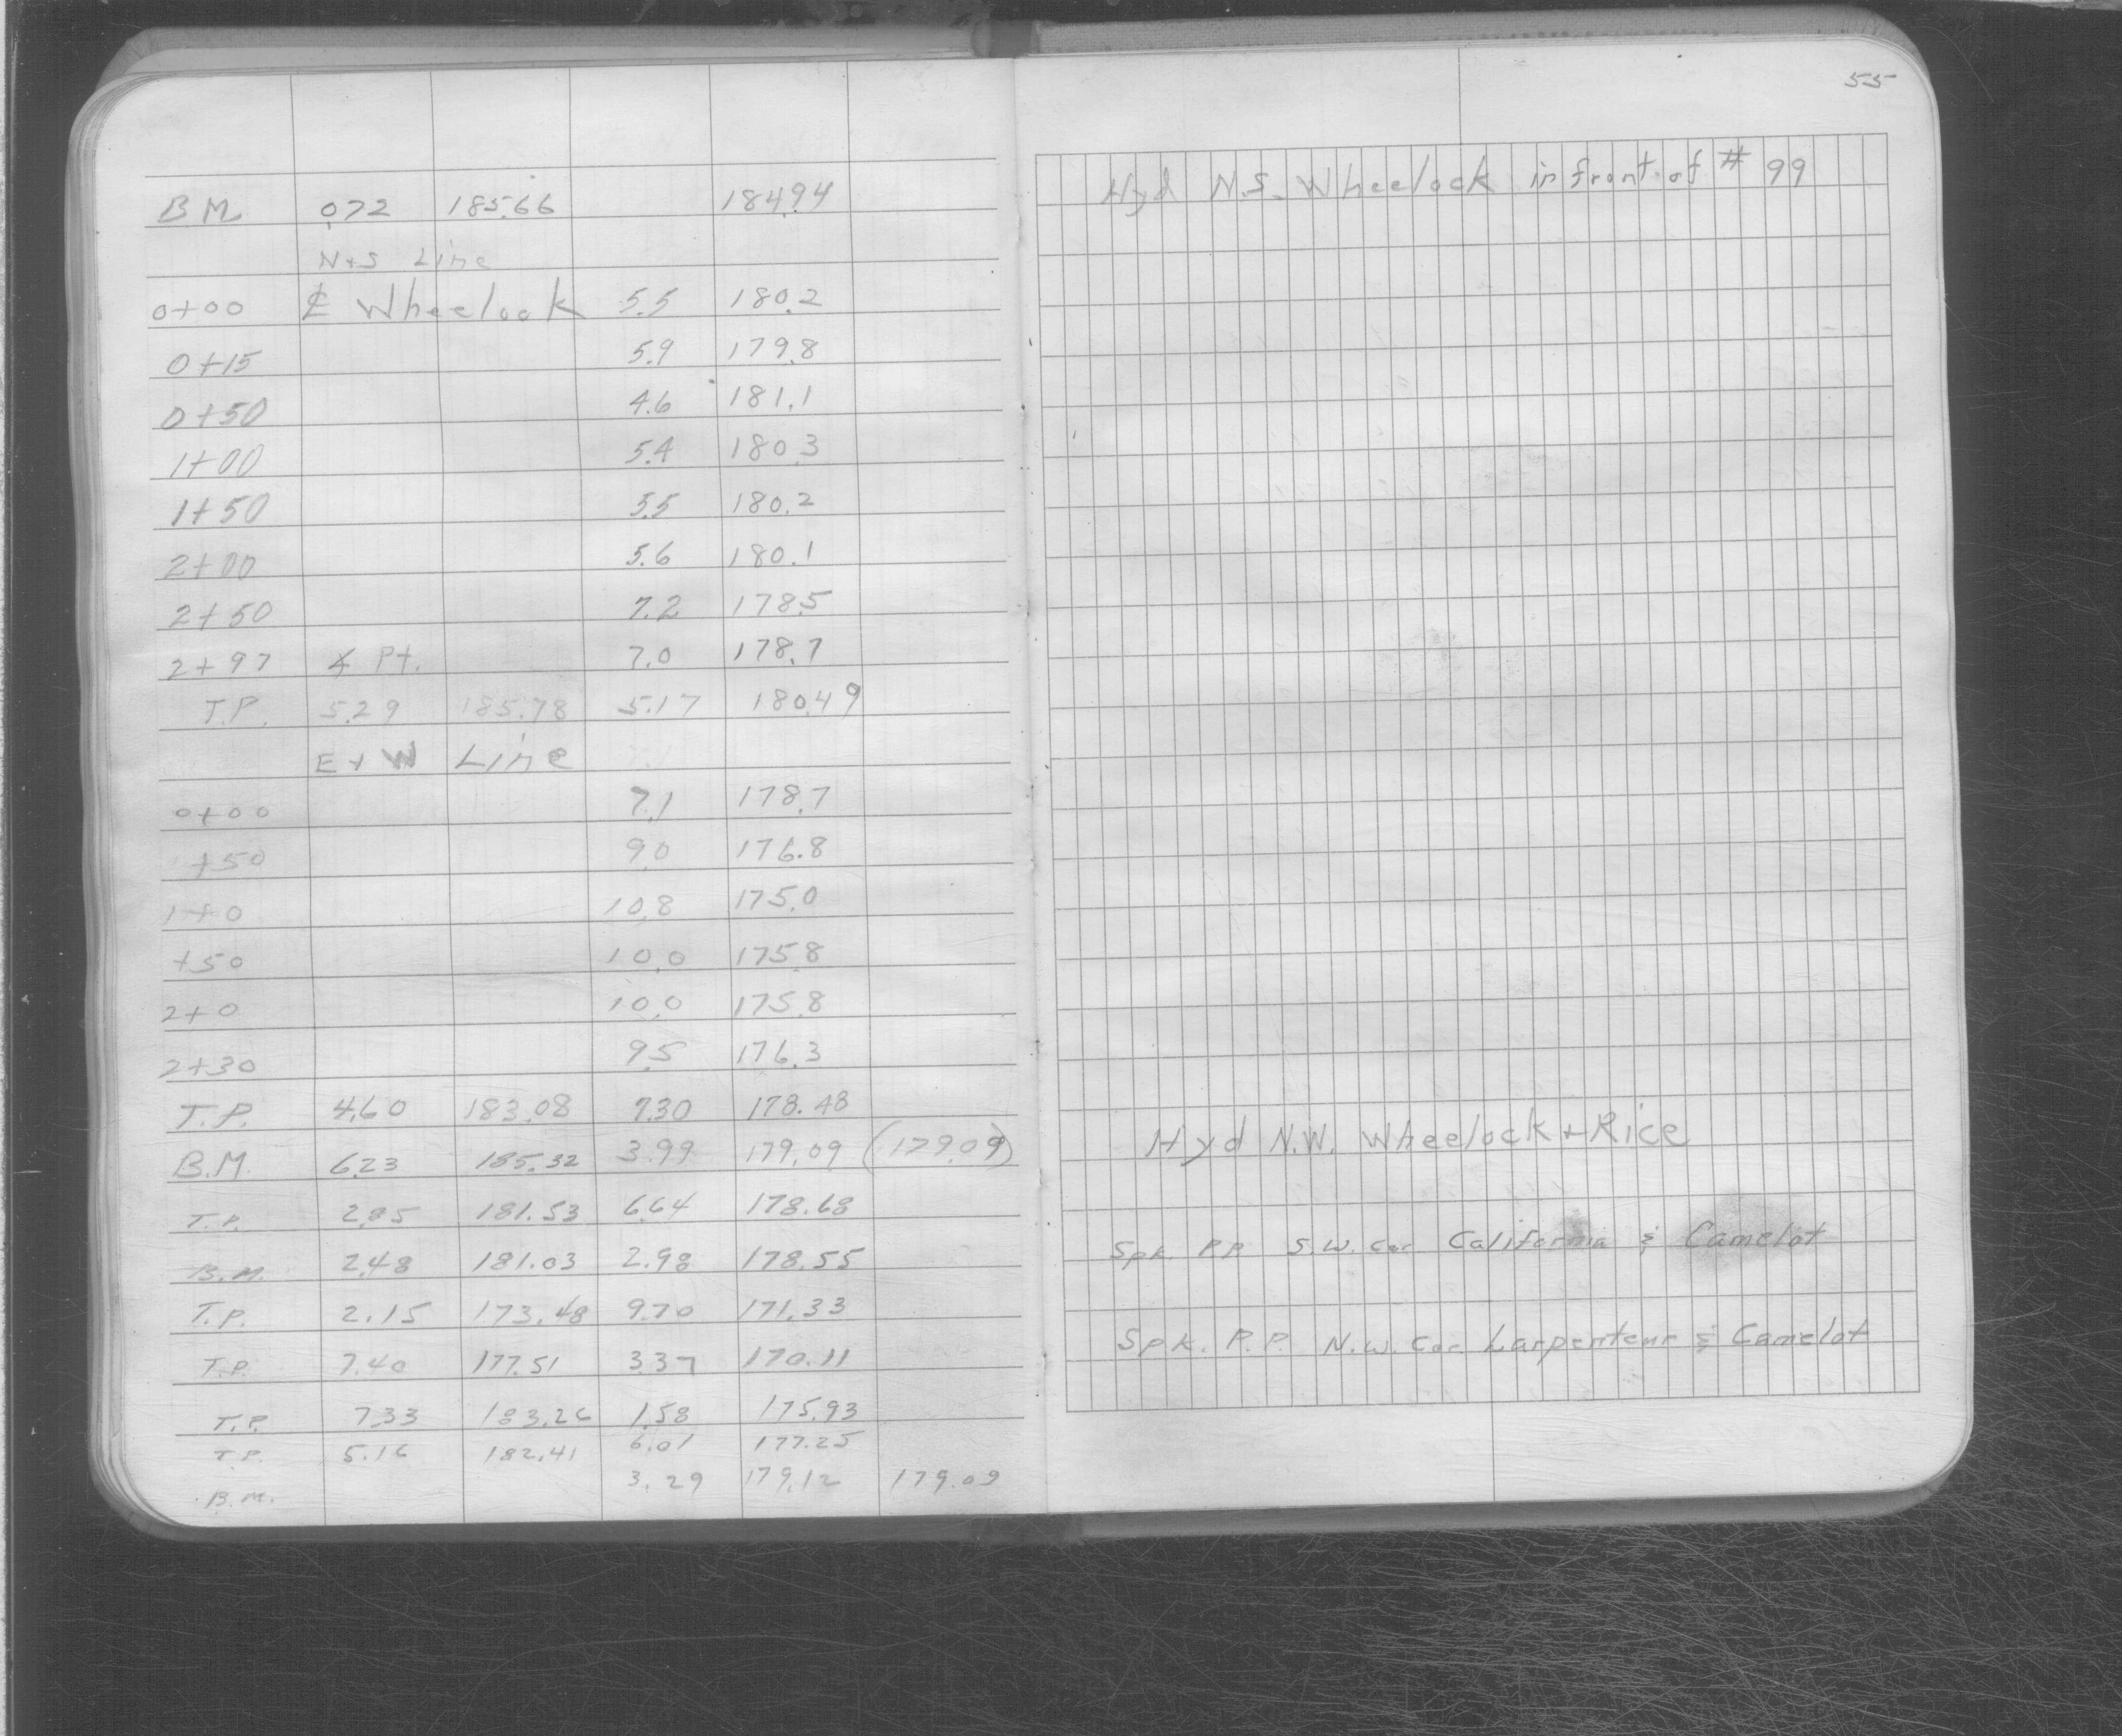 55
B M 0.72 185.66 184.94 Hyd N.S. Wheelock in front of # 99
N+S Line
0+00 ℄ Wheelock 5.5 180.2
0+15 5.9 179.8
0+50 4.6 181.1
1+00 5.4 180.3
1+50 5.5 180.2
2+00 5.6 180.1
2+50 7.2 178.5
2+97 ∠ Pt. 7.0 178.7
T.P. 5.29 185.78 5.17 180.49
E+W Line
0+00 7.1 178.7
+50 9.0 176.8
1+0 10.8 175.0
+50 10.0 175.8
2+0 10.0 175.8
2+30 9.5 176.3
T.P. 4.60 183.08 7.30 178.48
B.M. 6.23 185.32 3.99 179.09 (179.09) Hyd N.W. Wheelock + Rice
T.P. 2.85 181.53 6.64 178.68
B.M. 2.48 181.03 2.98 178.55 Spk. P.P. S.W. Cor California & Camelot
T.P. 2.15 173.48 9.70 171.33
T.P. 7.40 177.51 3.37 170.11 Spk. P.P. N.W. Cor. Larpenteur & Camelot
T.P. 7.33 183.26 1.58 175.93
T.P. 5.16 182.41 6.01 177.25
B.M. 3.29 179.12 179.09